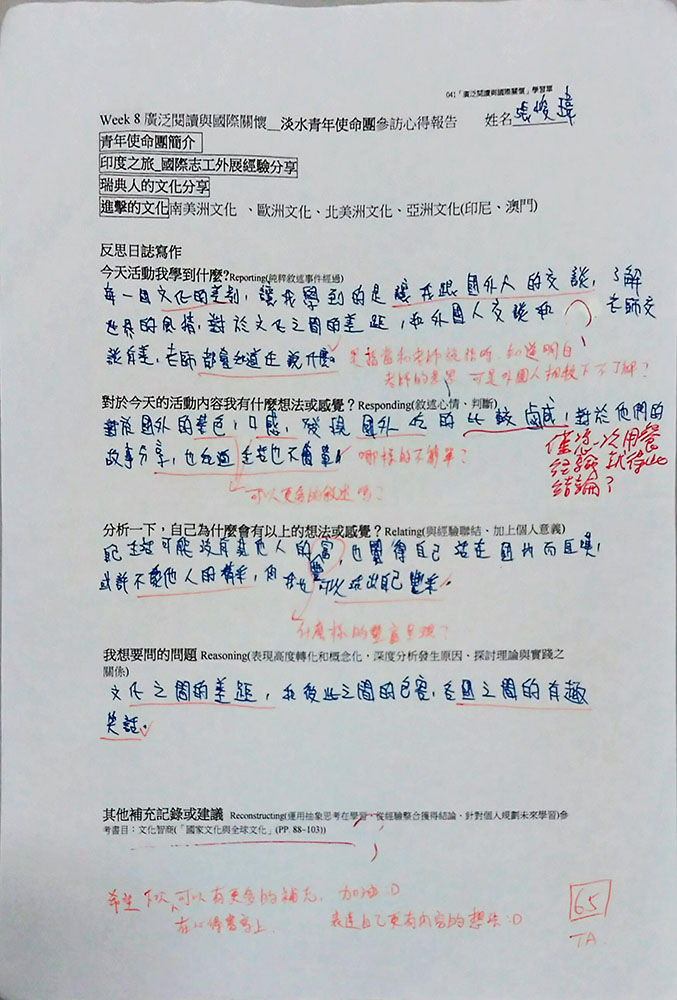 041「廣泛閱讀與國際關懷」學習單
Week 8 廣泛閱讀與國際關懷__淡水青年使命團參訪心得報告 姓名
青年使命團簡介
印度之旅_國際志工外展經驗分享
瑞典人的文化分享
進擊的文化南美洲文化 、歐洲文化、北美洲文化、亞洲文化(印尼、澳門)
反思日誌寫作
今天活動我學到什麼?Reporting(純粹敘述事件經過)
每一國文化的差別, 讓我學到的是 讓我跟國外人的交談, 了解
世界的風情, 對於文化之間的差距, 和外國人交談和老師交
談有差, 老師都會知道在說什麼。
是語言和老師說話時, 知道明白
老師的意思 可是外國人相較下不了解?
對於今天的活動內容我有什麼想法或感覺?Responding(敘述心情、判斷)
對於國外的菜色, 口感, 發現國外吃的比較鹹, 對於他們的
故事分享, 也知道 也不簡單。 哪樣的不簡單?
僅憑一次用餐
經驗 就得此
結論?
可以更多的敘述嗎?
分析一下,自己為什麼會有以上的想法或感覺?Relating(與經驗聯結、加上個人意義)
可能沒有其他人的豐富, 也覺得自己
或許不像他人的精采, 但 也可以 出自己豐采。
什麼樣的豐富呈現?
我想要問的問題 Reasoning(表現高度轉化和概念化,深度分析發生原因、探討理論與實踐之
關係)
文化之間的差距, 和彼此之間的包容, 各國之間的有趣
笑話。
其他補充記錄或建議 Reconstructing(運用抽象思考在學習,從經驗整合獲得結論、針對個人規劃未來學習)參
考書目:文化智商(「國家文化與全球文化」(PP. 88-103))
希望下次可以有更多的補充, 加油 :D
在心得書寫上 表達自己更有內容的想法 :D
65
TA.